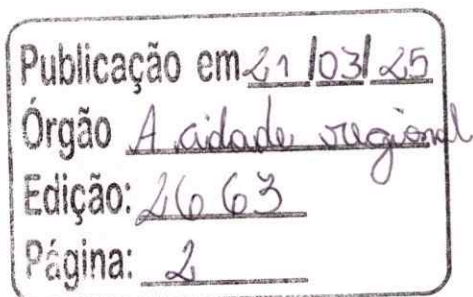 Publicação em 21/03/25
Órgão A cidade regional
Edição: 2663
Página: 2